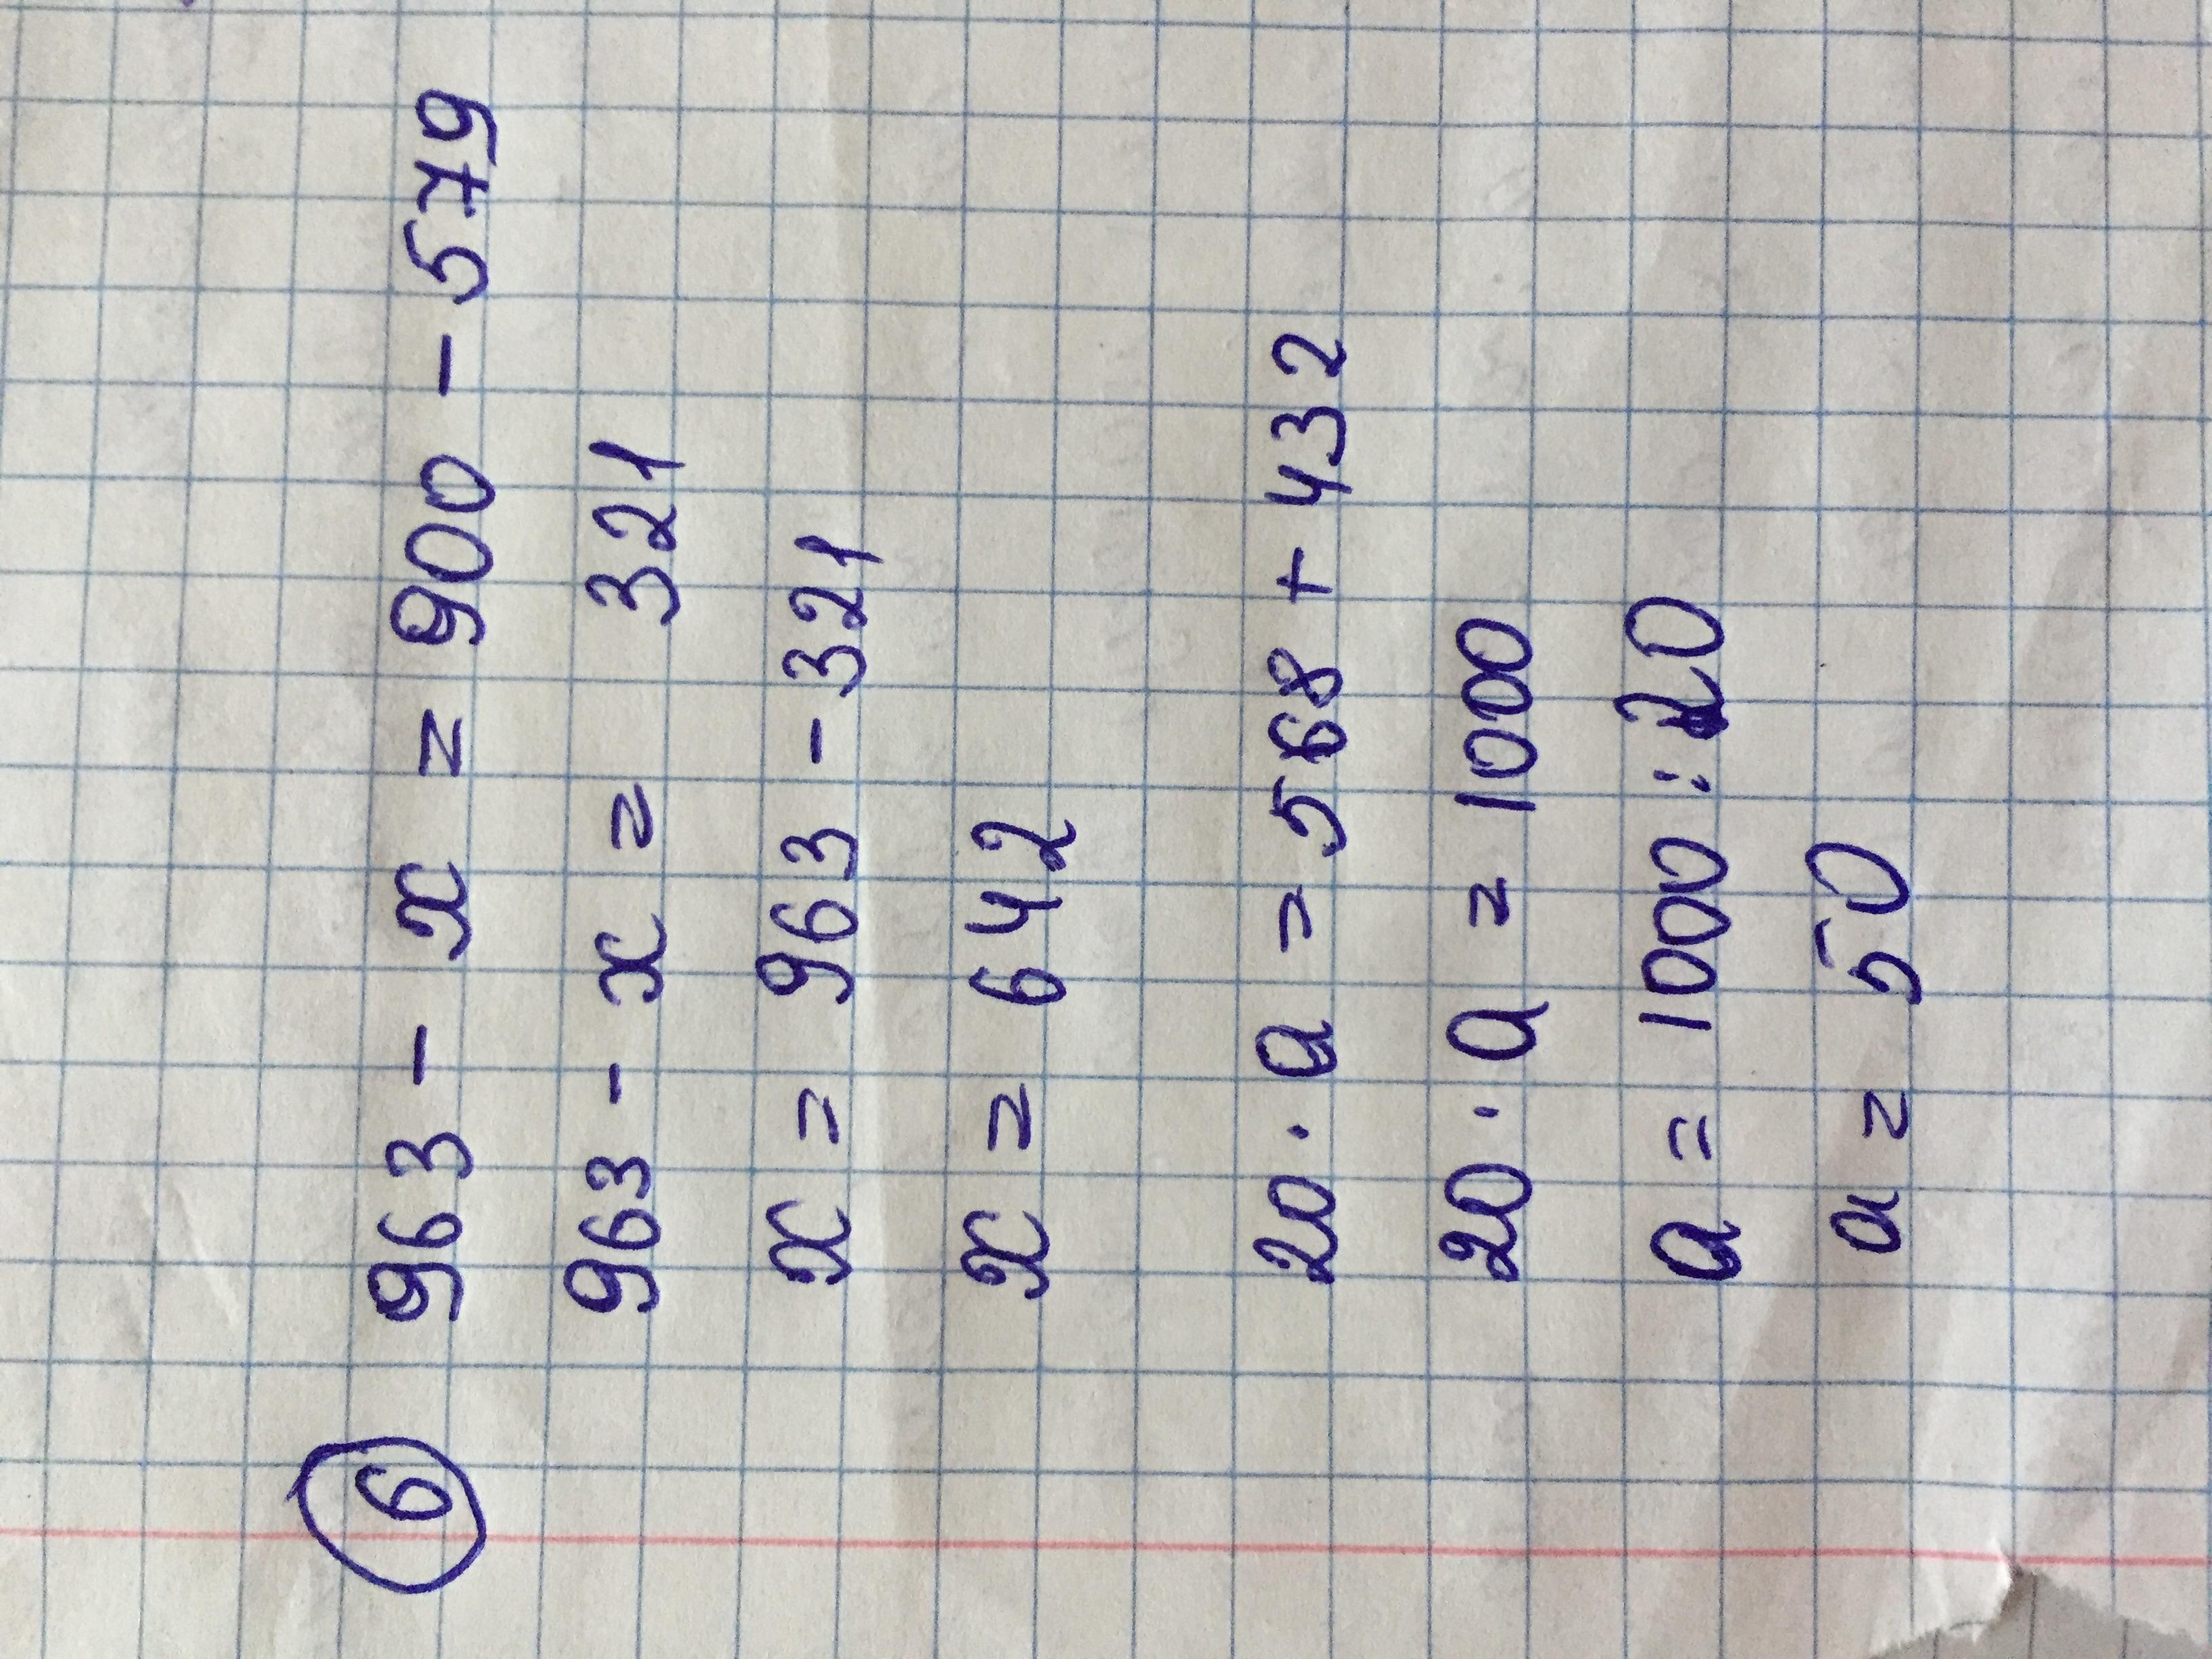 6 963 - x = 900 - 579
963 - x = 321
x = 963 - 321
x = 642
20 · a = 568 + 432
20 · a = 1000
a = 1000 : 20
a = 50